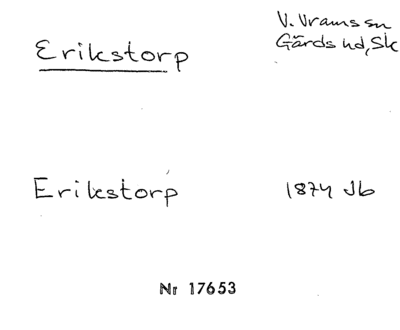 Erikstorp
V. Vrams sn
Gärds hd, Sk
Erikstorp
1874 Jb
Nr 17653